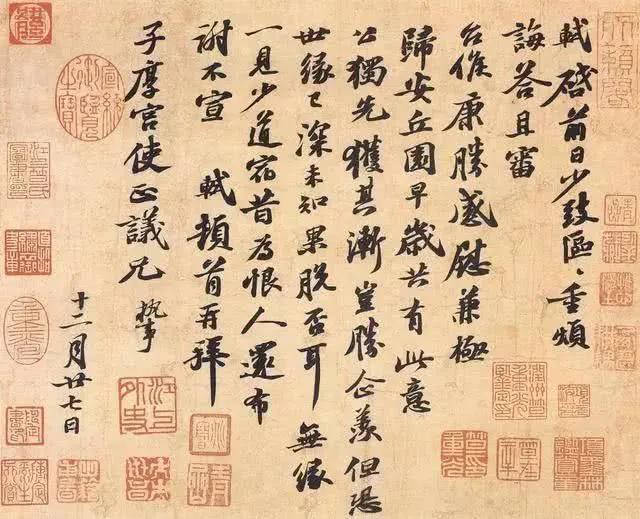 軾啓前日少致區〻重煩
誨答且審
台候康勝感慰兼極
歸安丘園早歲共有此意
公獨先獲其漸豈勝企羨但恐
世緣已深未知果脫否耳無緣
一見少道宿昔為恨人還布
謝不宣 軾頓首再拜
子厚宮使正議兄 執事
十二月廿七日
江上外史